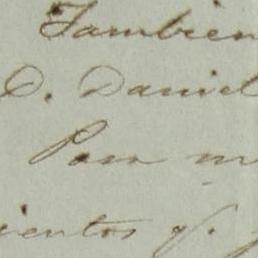 Tambien
D. Daniel
Para m
ientos q.